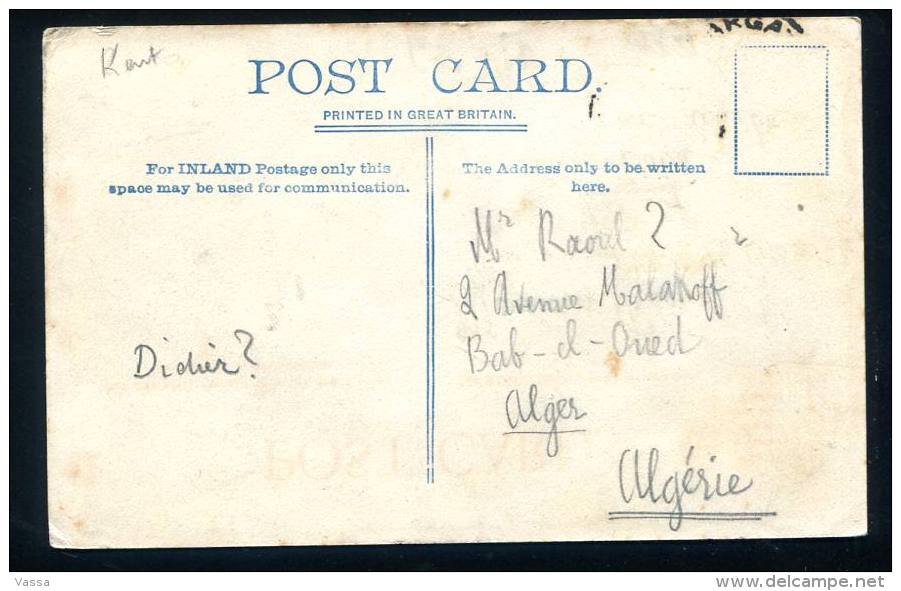 Kent
POST CARD.
PRINTED IN GREAT BRITAIN.
For INLAND Postage only this
space may be used for communication.
The Address only to be written
here.
Mr Raoul ?
2 Avenue Malakoff
Bab-el-Oued
Alger
Algérie
Didier?
POST CAR
Vassa
delcampe.net